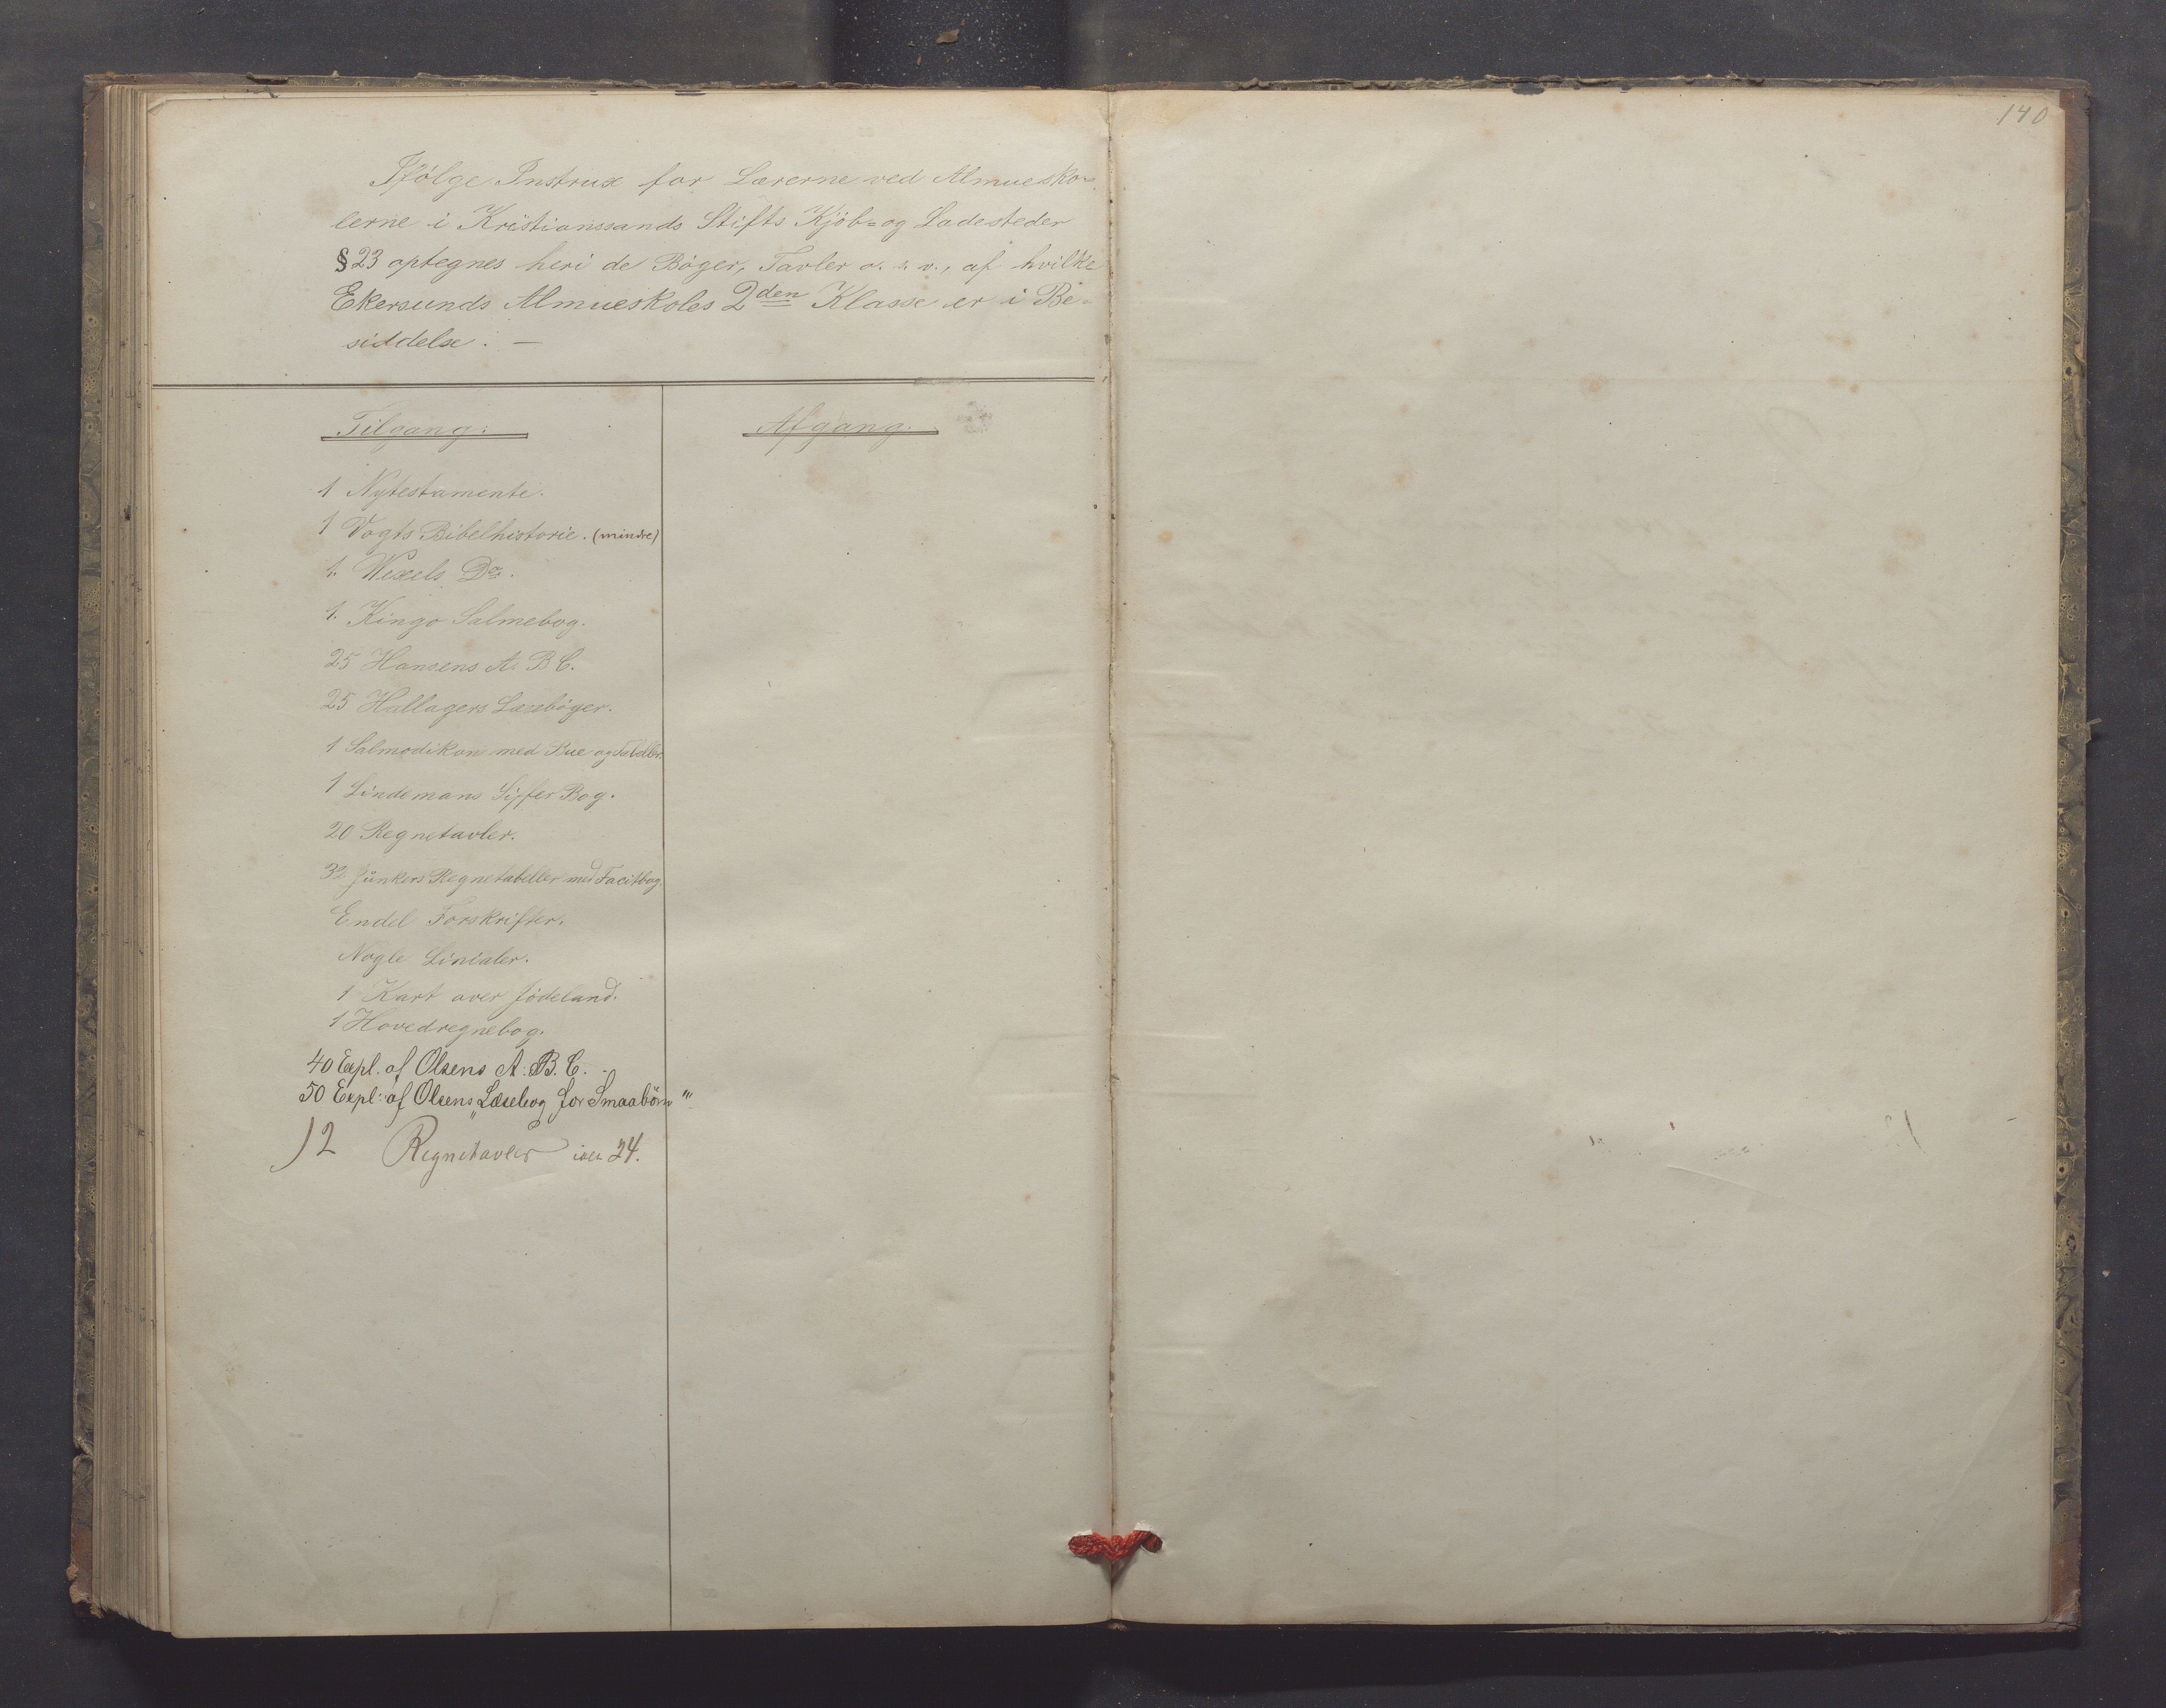 140
Ifölge Instrux for Lærerne ved Almuesko-
lerne i Kristianssands Stifts Kjöb= og Ladesteder
§ 23 optegnes heri de Böger, Tavler o. s. v., af hvilke
Ekersunds Almueskoles 2den Klasse er i Be-
siddelse. —
Tilgang. Afgang.
1 Nytestamente.
1 Vogts Bibelhistorie. (mindre)
1. Wexels Do.
1. Kingo Salmebog.
25 Hansens A. B C.
25 Hallagers Læsebøger.
1 Salmodikon med Bue og Tabeller.
1 Lindemans Siffer Bog.
20 Regnetavler.
32 Jünkers Regnetabeller med Facitbog.
Endel Forskrifter.
Nogle Linialer.
1 Kart over Jødeland.
1 Hovedregnebog.
40 Expl. af Olsens A. B. C.
50 Expl. af Olsens „Læsebog for Smaabörn"
12 Regnetavler 24.